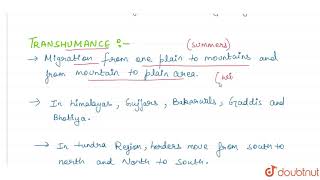 TRANSHUMANCE :- (summers)
→ Migration from one plain to mountains and
from mountain to plain area. (wi
→ In Himalayas, Gujjars, Bakarwals, Gaddis and
Bhotiya.
→ In tundra Region, herders move from south to
north and North to South.
doubtnut